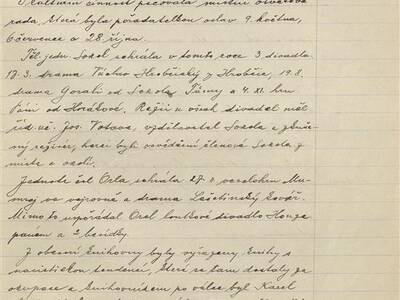 O kulturní činnost pečovala místní osvětová
rada, která byla pořadatelkou oslav 9. května,
6. července a 28. října.
Těl. jedn. Sokol sehrála v tomto roce 3 divadla.
17. 3. drama Václav Hrobčický z Hrobčic, 19. 8.
drama Gorali od Sokola Tůmy a 4. XI. hru
Paní od Horáková. Režii u všech divadel měl
říd. uč. Jos. Votava, vzdělavatel Sokola a
režisér, herci byli osvědčení členové Sokola z
místa a okolí.
Jednota čsl. Orla sehrála 27. veselohru Mu-
mraj ve výrovně a drama Lešetínský kovář.
Mimo to uspořádal Orel loutkové divadlo Honza
pánem a 2 besídky.
Z obecní knihovny byly vyřazeny knihy s
nacistickou tendencí, které se tam dostaly za
okupace a knihovníkem po válce byl Karel